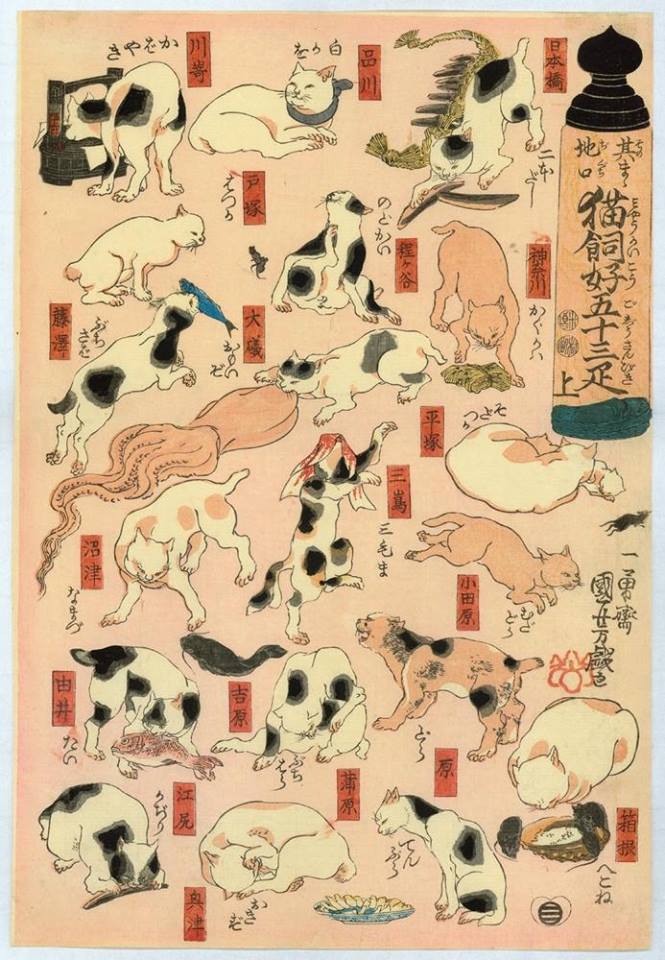 其まゝ地口
猫飼好五十三疋
上
日本橋
二本だし
品川
白かを
川嵜
かばやき
神奈川
かぐかハ
程ヶ谷
のどかい
戸塚
はつか
藤澤
ぶちさば
大礒
おもいぞ
平塚
そだつか
小田原
むだどら
箱根
へこね
三嶌
三毛ま
沼津
なまづ
原
どら
吉原
ぶちはら
蒲原
てんぷら
由井
たい
奥津
おきず
江尻
かぢり
一勇齋
國芳戯画